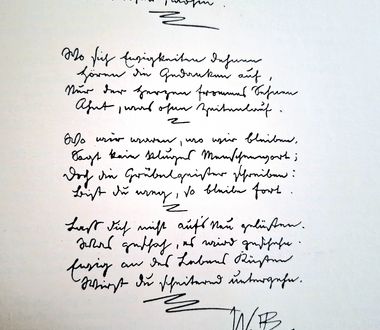 Wo sich Ewigkeiten dehnen
Hören die Gedanken auf,
Nur der Herzen frommes Sehnen
Ahnt, was ohne Zeitenlauf.
Wo wir waren, wo wir bleiben,
Sagt kein kluges Menschenwort;
Doch die Grübelgeister schreiben:
Bist du weg, so bleibe fort.
Lass dich nicht auf's Neu gelüsten.
Was geschah, es wird geschehn.
Ewig an des Lebens Küsten
Wirst du scheiternd untergehn.
W.B.